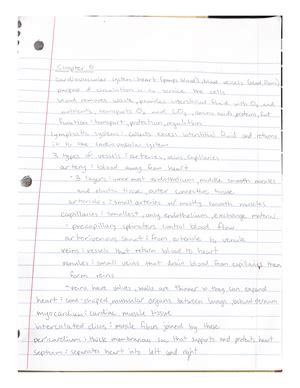 Chapter 5
cardiovascular system: heart (pumps blood), blood vessels (blood flow)
purpose of circulation is to service the cells
blood removes waste, provides interstitial fluid with O2 and
nutrients, transports O2 and CO2, amino acids, proteins, fat
function: transport, protection, regulation
lymphatic system: collects excess interstitial fluid and returns
it to the cardiovascular system
3 types of vessels: arteries, veins, capillaries
artery: blood away from heart
- 3 layers: inner most endothelium, middle smooth muscles
and elastic tissue, outer connective tissue
arterioles: small arteries w/ mostly smooth muscles
capillaries: smallest, only endothelium, exchange material
- precapillary sphincters control blood flow
arteriovenous shunt: from arteriole to venule
veins: vessels that return blood to heart
venules: small veins that drain blood from capillaries then
form veins
- veins have valves, walls are thinner so they can expand
heart: cone-shaped, muscular organs between lungs, behind sternum
myocardium: cardiac muscle tissue
intercalated discs: muscle fibers joined by these
pericardium: thick membranous sac that supports and protects heart
septum: separates heart into left and right